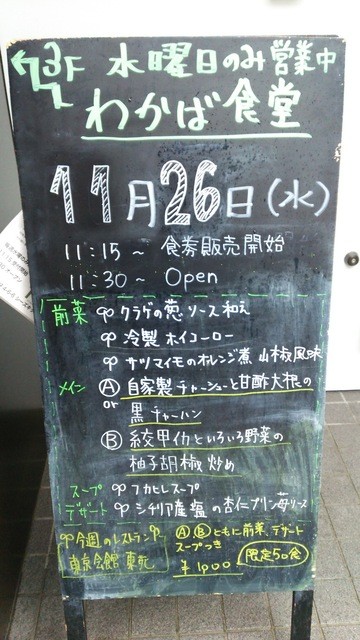 3F 水曜日のみ営業中
わかば食堂
11月26日(水)
11:15～ 食券販売開始
11:30～ Open
前菜 クラゲの葱ソース和え
冷製ホイコーロー
サツマイモのオレンジ煮 山椒風味
メイン Ⓐ 自家製チャーシューと甘酢大根の
or 黒チャーハン
Ⓑ 紋甲イカといろいろ野菜の
柚子胡椒炒め
スープ フカヒレスープ
デザート シチリア産塩の杏仁プリン苺ソース
今週のレストラン
東京會舘 東苑
Ⓐ Ⓑ ともに前菜、デザート
スープつき
¥1000 限定50食